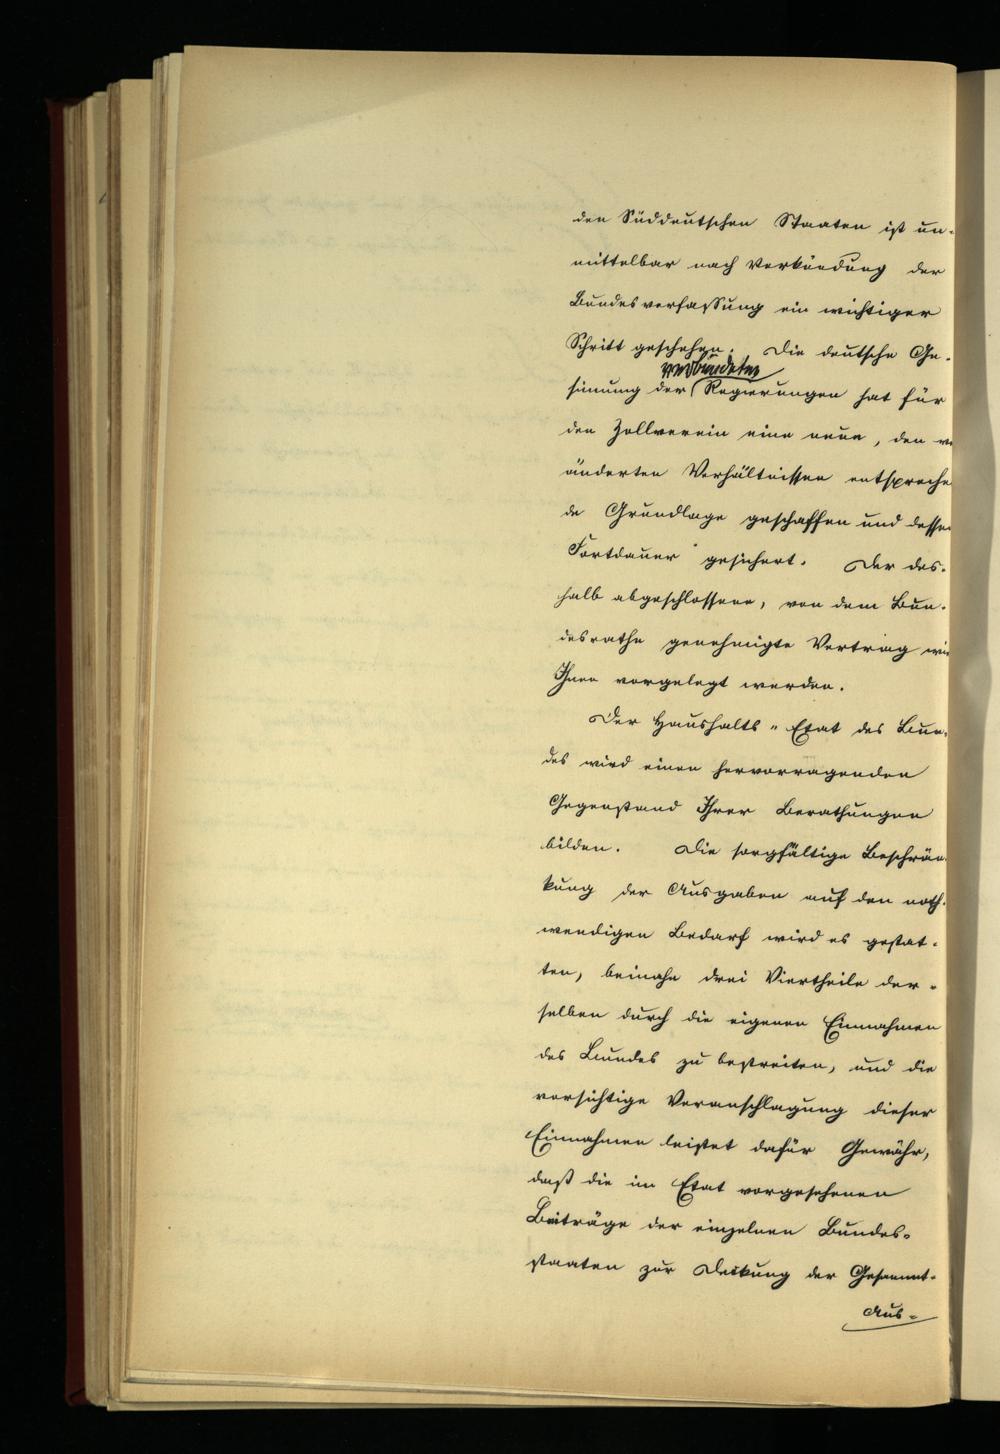 den Süddeutschen Staaten ist un-
mittelbar nach Verkündung der
Bundesverfassung ein wichtiger
Schritt geschehen. Die deutsche Ge-
verbündeten
sinnung der Regierungen hat für
den Zollverein eine neue, den ve
änderten Verhältnissen entspreche
de Grundlage geschaffen und desse
Fortdauer gesichert. Der des-
halb abgeschlossene, von dem Bun-
desrathe genehmigte Vertrag wi
Ihnen vorgelegt werden.
Der Haushalts-Etat des Bun-
des wird einen hervorragenden
Gegenstand Ihrer Berathungen
bilden. Die sorgfältige Beschrän-
kung der Ausgaben auf den noth-
wendigen Bedarf wird es gestat-
ten, beinahe drei Viertheile der-
selben durch die eigenen Einnahmen
des Bundes zu bestreiten, und die
vorsichtige Veranschlagung dieser
Einnahmen leistet dafür Gewähr,
daß die im Etat vorgesehenen
Beiträge der einzelnen Bundes-
staaten zur Deckung der Gesammt-
Aus-